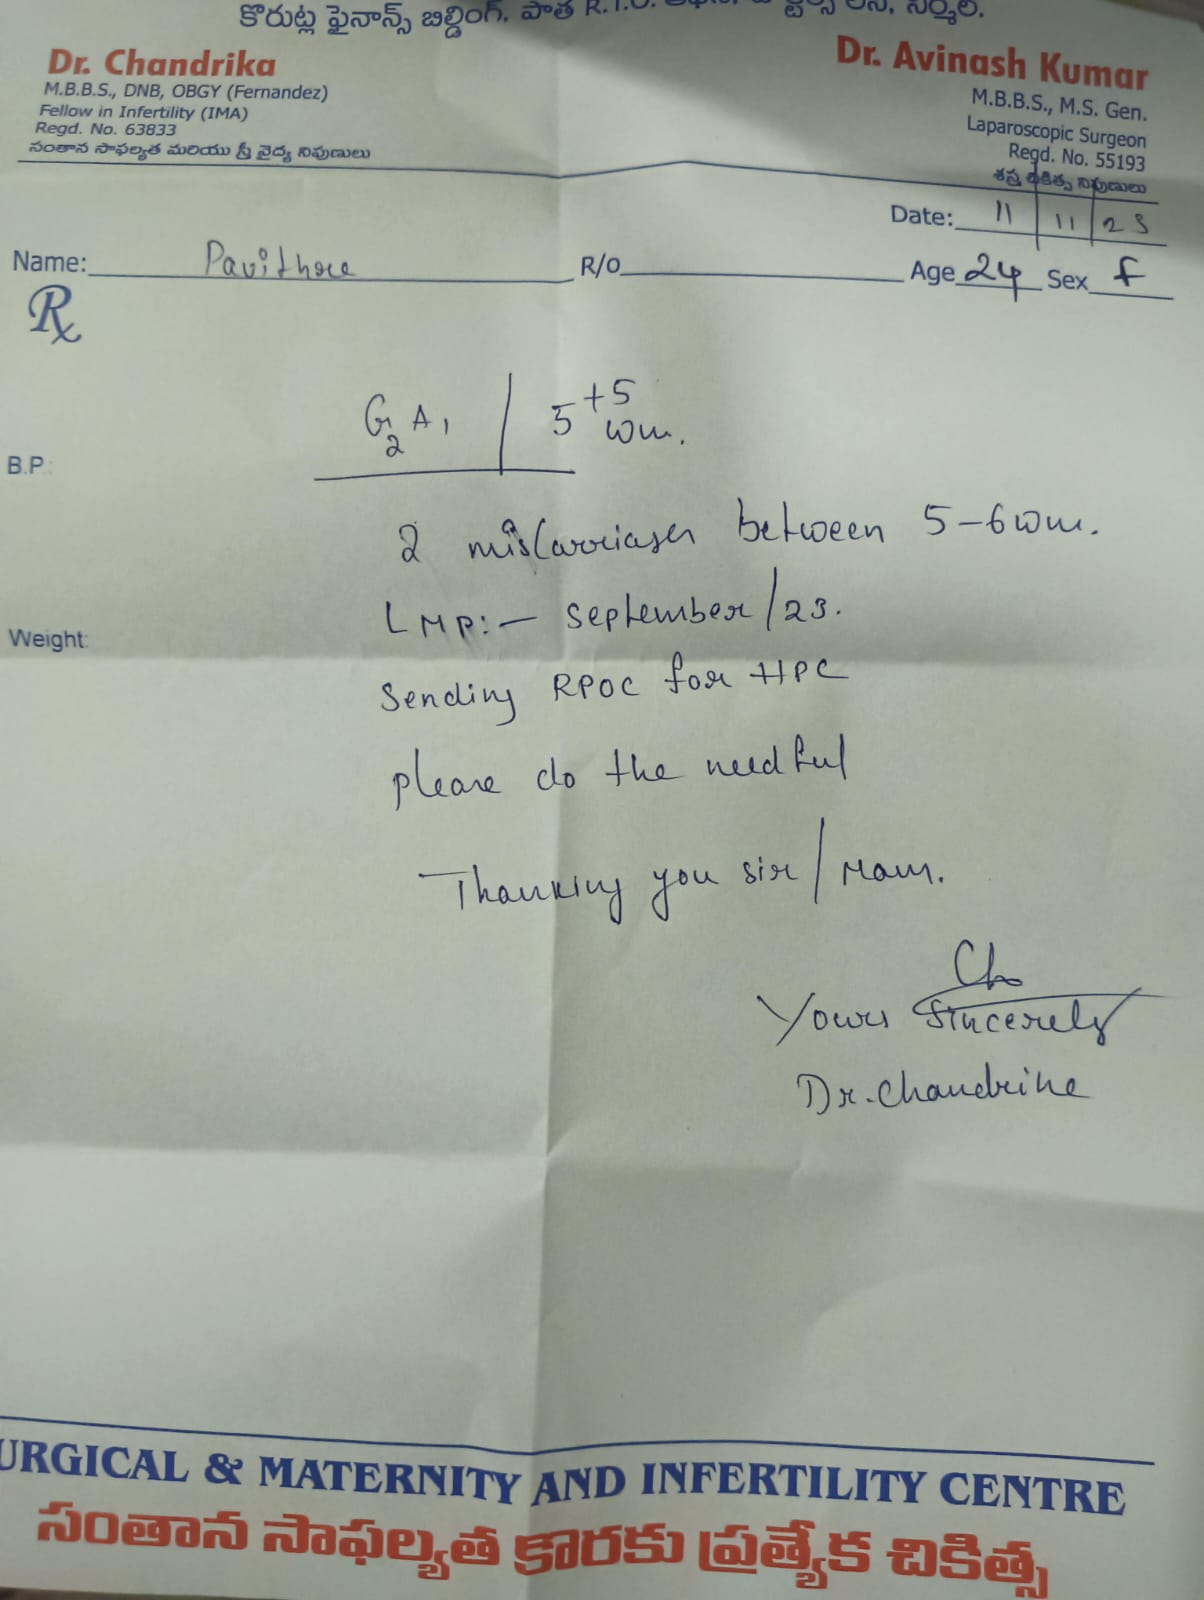 కొరుట్ల ఫైనాన్స్ బిల్డింగ్, పాత R.T.O. నిర్మల్.
Dr. Chandrika
M.B.B.S., DNB, OBGY (Fernandez)
Fellow in Infertility (IMA)
Regd. No. 63833
సంతాన సాఫల్యత మరియు స్త్రీ వైద్య నిపుణులు
Dr. Avinash Kumar
M.B.B.S., M.S. Gen.
Laparoscopic Surgeon
Regd. No. 55193
శస్త్ర చికిత్స నిపుణులు
Date: 11 11 23
Name: Pavithra R/o Age 24 Sex F
Rx
G2 A1 5+5 wks.
B.P.:
2 miscarriages between 5-6 wks.
LMP:- September/23.
Weight:
Sending RPOC for HPC
please do the needful
Thanking you sir/Mam.
Yours Sincerely
Dr. Chandrika
URGICAL & MATERNITY AND INFERTILITY CENTRE
సంతాన సాఫల్యత కొరకు ప్రత్యేక చికిత్స